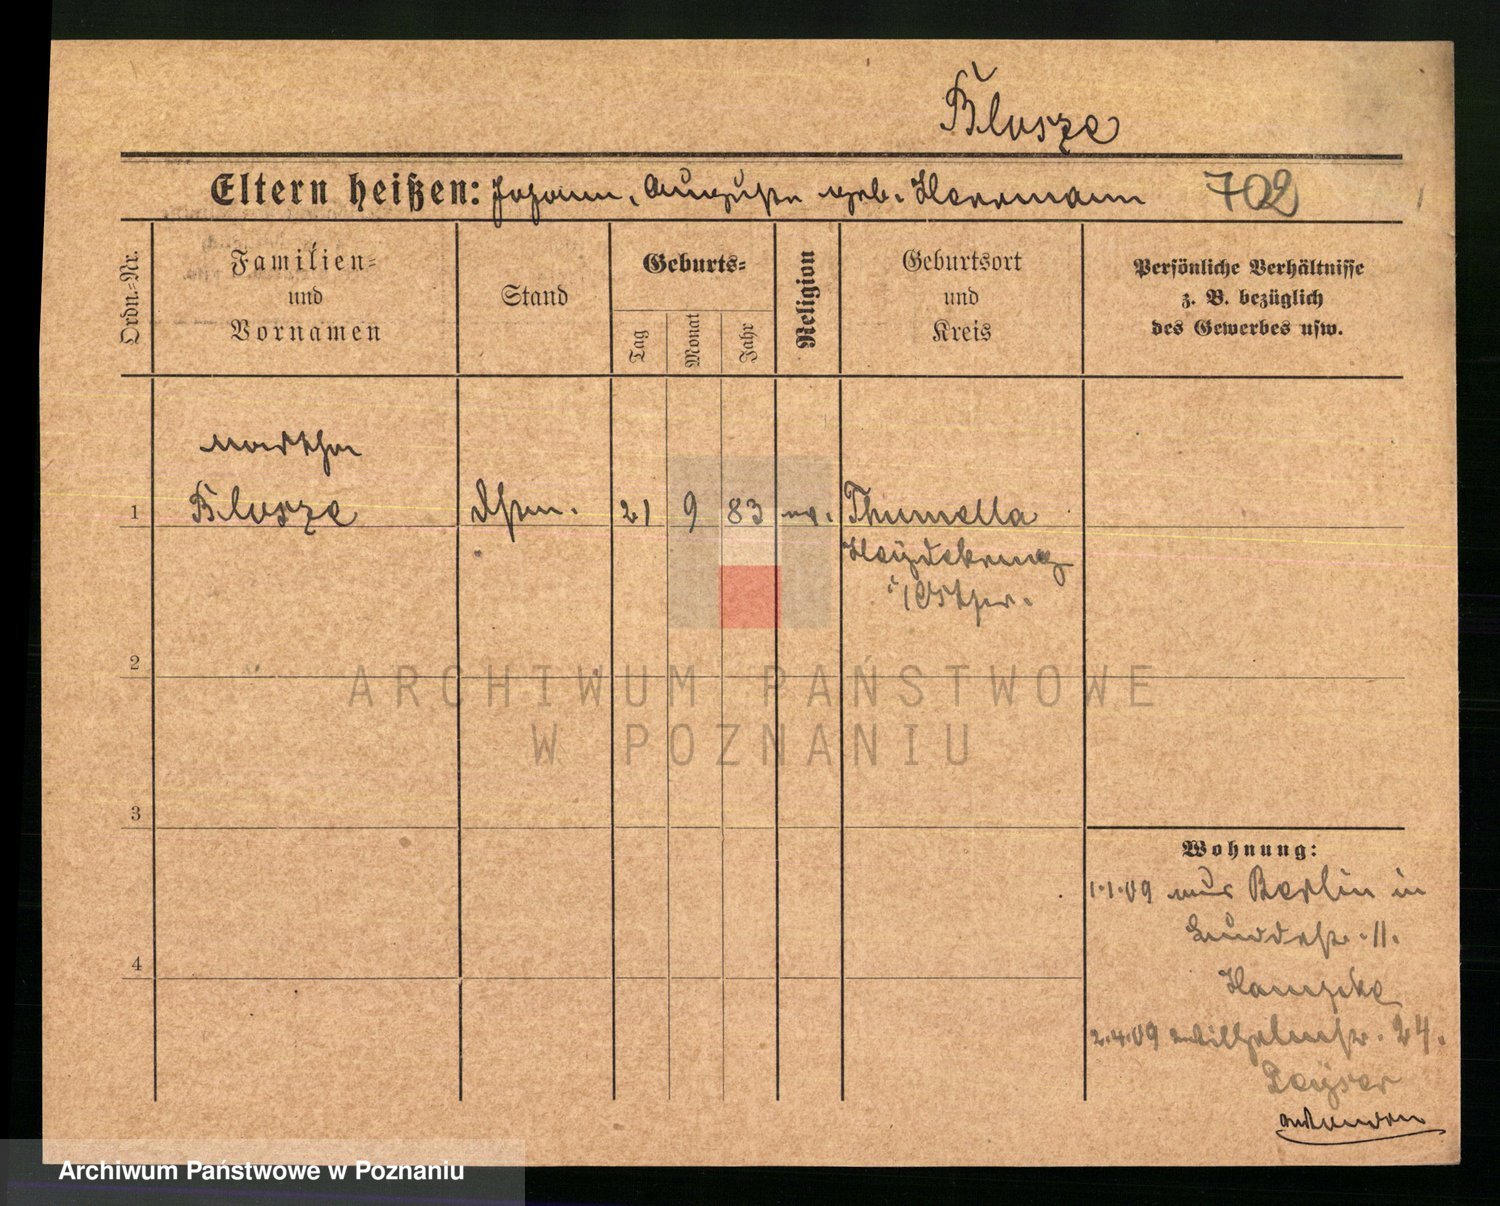 Blusze
Eltern heißen: Johann, Auguste geb. Herrmann 702
Ordn.-Nr.
Familien-
und
Vornamen
Stand
Geburts-
Tag
Monat
Jahr
Religion
Geburtsort
und
Kreis
Persönliche Verhältnisse
z. B. bezüglich
des Gewerbes usw.
Martha
1 Blusze 21 9 83 ev. Thumella
Heydekrug
i/Ostpr.
2
3
4
ARCHIWUM PAŃSTWOWE
W POZNANIU
Wohnung:
1.1.09 aus Berlin in
11.
2.4.09 Wilhelmstr. 24.
Archiwum Państwowe w Poznaniu